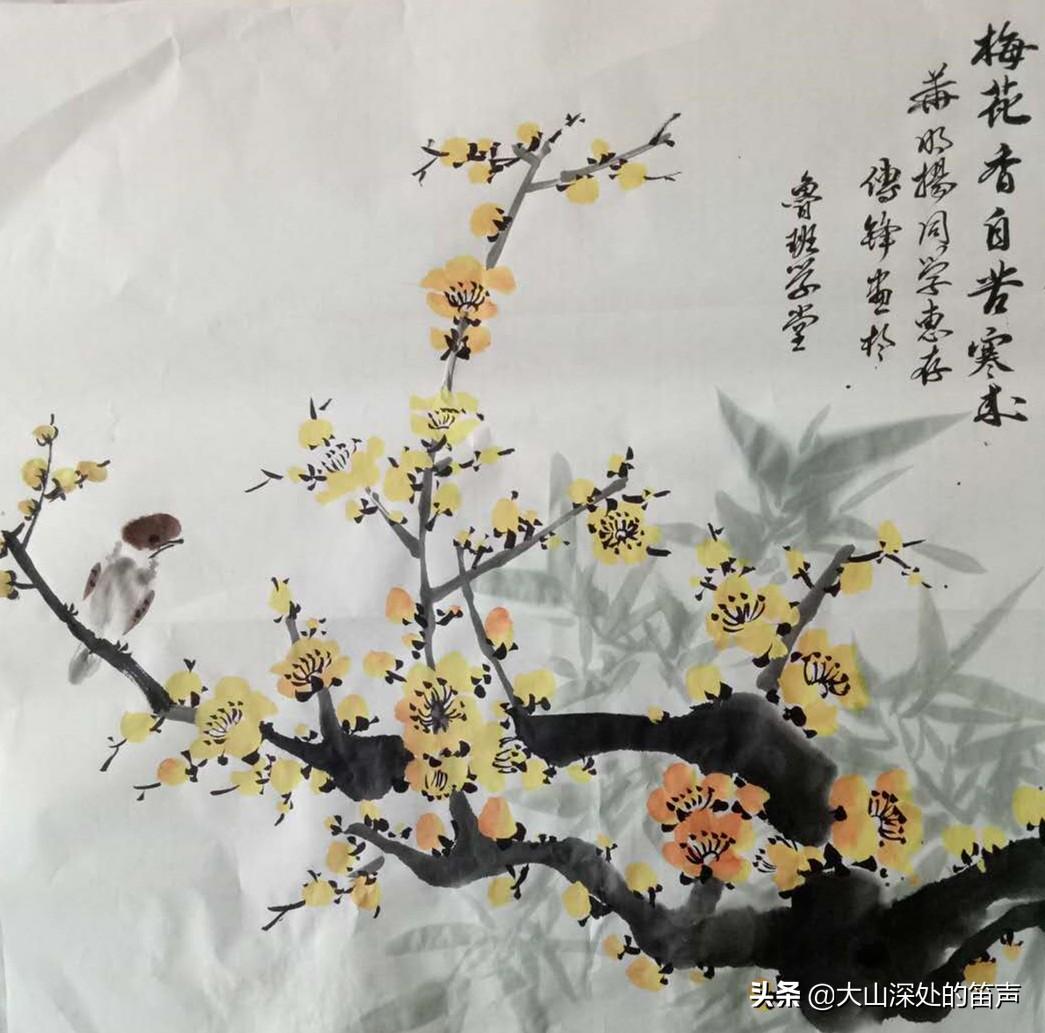 梅花香自苦寒来
明揚同学惠存
傳鋒畫於
魯班学堂
头条 @大山深处的笛声